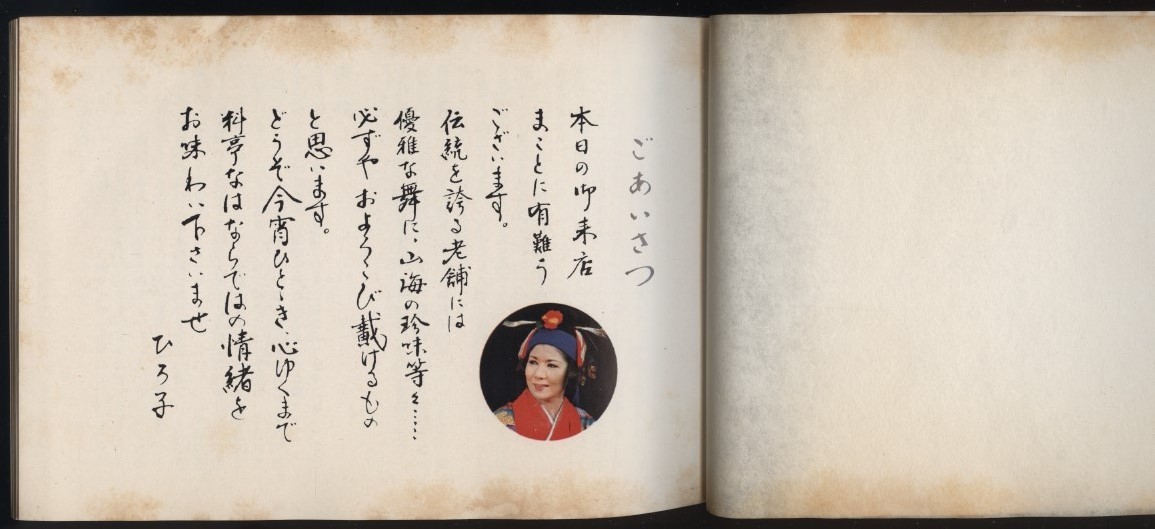 ごあいさつ
本日の御来店
まことに有難う
ございます。
伝統を誇る老舗には
優雅な舞に、山海の珍味等々……
必ずや およろこび戴けるもの
と思います。
どうぞ今宵ひととき、心ゆくまで
料亭なはならではの情緒を
お味わい下さいませ
ひろ子